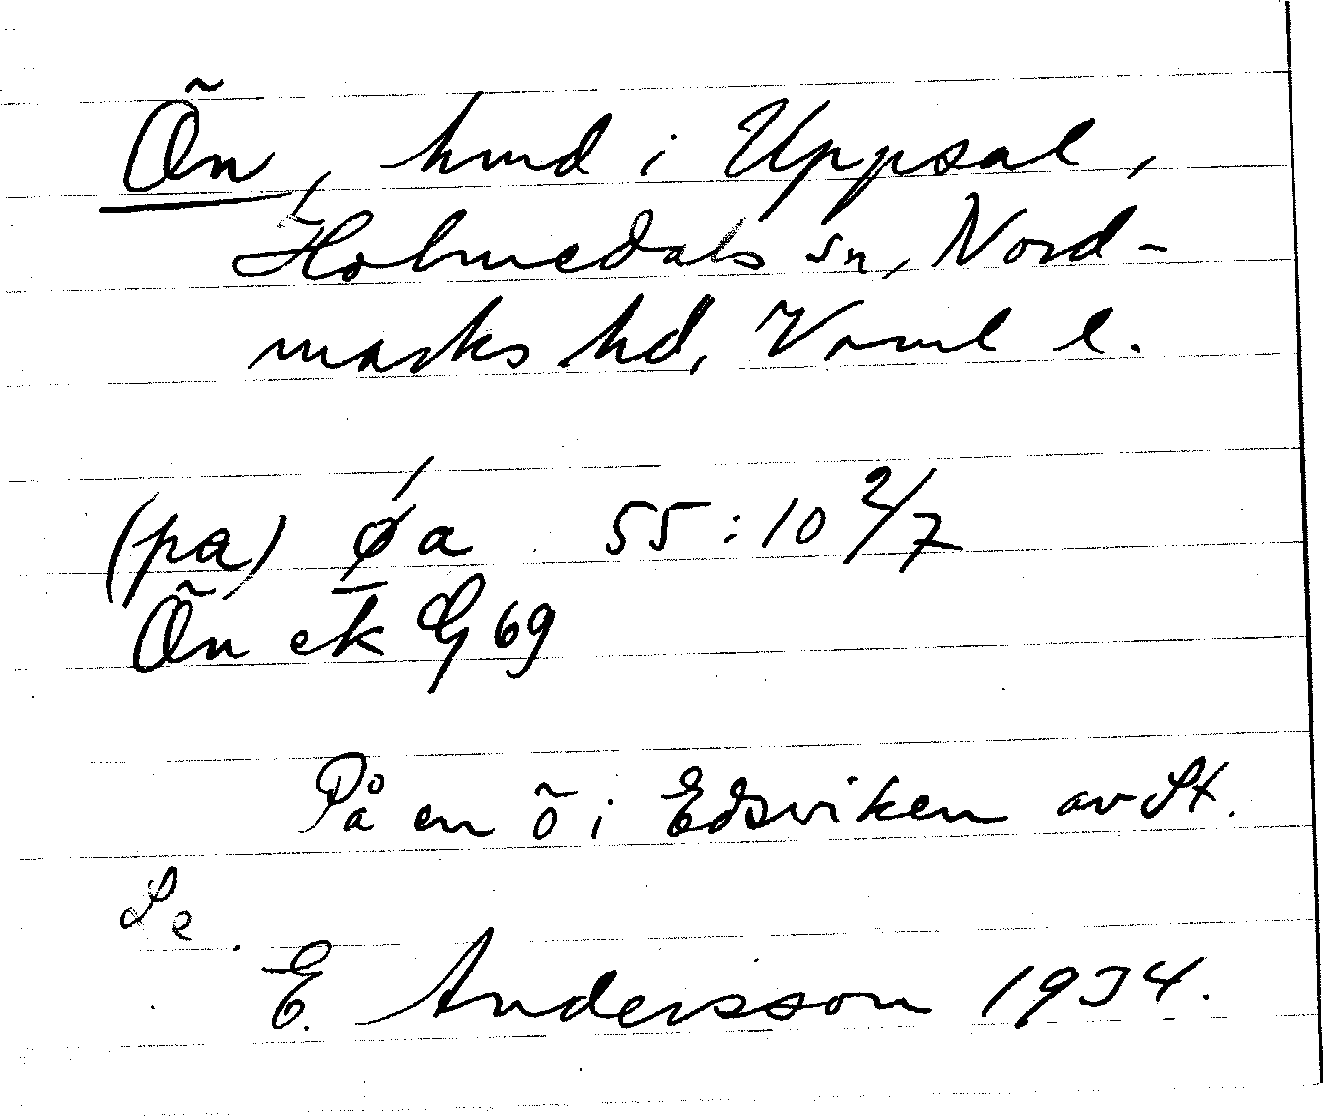 Ön, hmd i Uppsal,
Holmedals sn, Nord-
marks hd, Vrml l.
(pa) øa 55:10 2/7
Ön ek G 69
På en ö i Edsviken av St.
Le.
E. Andersson 1934.